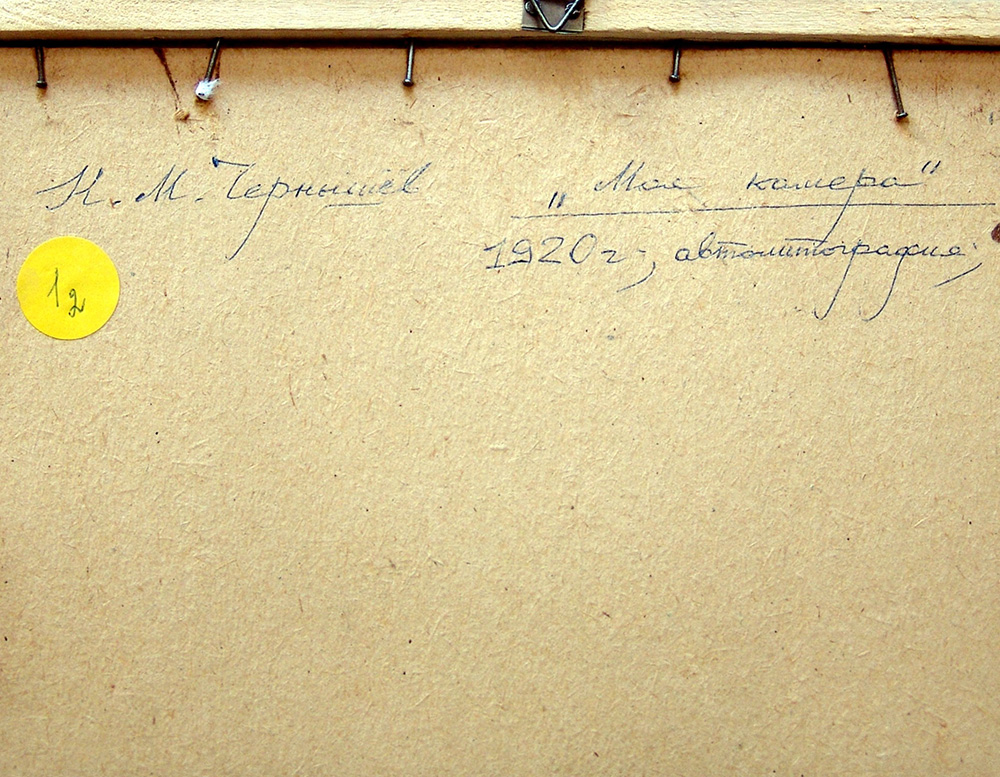 Н. М. Чернышёв
„Моя камера"
1920 г., автолитография,
12